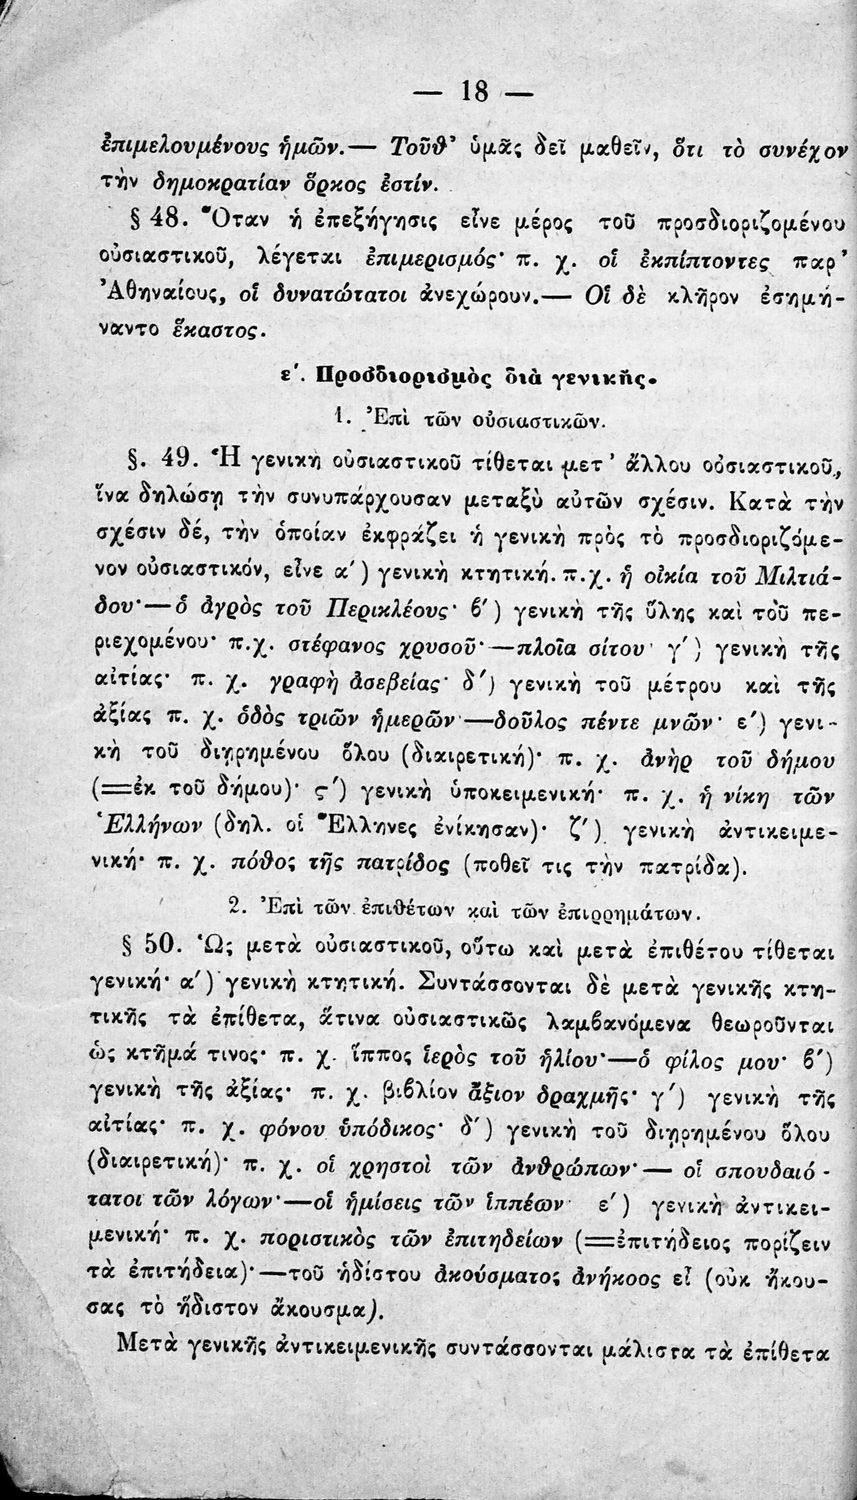 — 18 —
ἐπιμελουμένους ἡμῶν.— Τοῦθ' ὑμᾶς δεῖ μαθεῖν, ὅτι τὸ συνέχον
τὴν δημοκρατίαν ὅρκος ἐστίν.
§ 48. Ὅταν ἡ ἐπεξήγησις εἶνε μέρος τοῦ προσδιοριζομένου
οὐσιαστικοῦ, λέγεται ἐπιμερισμός· π. χ. οἱ ἐκπίπτοντες παρ'
Ἀθηναίους, οἱ δυνατώτατοι ἀνεχώρουν.— Οἱ δὲ κλῆρον ἐσημή-
ναντο ἕκαστος.
ε'. Προσδιορισμὸς διὰ γενικῆς.
1. Ἐπὶ τῶν οὐσιαστικῶν.
§. 49. Ἡ γενικὴ οὐσιαστικοῦ τίθεται μετ' ἄλλου οὐσιαστικοῦ,
ἵνα δηλώσῃ τὴν συνυπάρχουσαν μεταξὺ αὐτῶν σχέσιν. Κατὰ τὴν
σχέσιν δέ, τὴν ὁποίαν ἐκφράζει ἡ γενικὴ πρὸς τὸ προσδιοριζόμε-
νον οὐσιαστικόν, εἶνε α') γενικὴ κτητική. π.χ. ἡ οἰκία τοῦ Μιλτιά-
δου·—ὁ ἀγρὸς τοῦ Περικλέους· β') γενικὴ τῆς ὕλης καὶ τοῦ πε-
ριεχομένου· π.χ. στέφανος χρυσοῦ·—πλοῖα σίτου· γ') γενικὴ τῆς
αἰτίας· π. χ. γραφὴ ἀσεβείας· δ') γενικὴ τοῦ μέτρου καὶ τῆς
ἀξίας π. χ. ὁδὸς τριῶν ἡμερῶν·—δοῦλος πέντε μνῶν· ε') γενι-
κὴ τοῦ διῃρημένου ὅλου (διαιρετική)· π. χ. ἀνὴρ τοῦ δήμου
(=ἐκ τοῦ δήμου)· ς') γενικὴ ὑποκειμενική· π. χ. ἡ νίκη τῶν
Ἑλλήνων (δηλ. οἱ Ἕλληνες ἐνίκησαν)· ζ') γενικὴ ἀντικειμε-
νική· π. χ. πόθος τῆς πατρίδος (ποθεῖ τις τὴν πατρίδα).
2. Ἐπὶ τῶν ἐπιθέτων καὶ τῶν ἐπιρρημάτων.
§ 50. Ὡς μετὰ οὐσιαστικοῦ, οὕτω καὶ μετὰ ἐπιθέτου τίθεται
γενική· α') γενικὴ κτητική. Συντάσσονται δὲ μετὰ γενικῆς κτη-
τικῆς τὰ ἐπίθετα, ἅτινα οὐσιαστικῶς λαμβανόμενα θεωροῦνται
ὡς κτῆμά τινος· π. χ. ἵππος ἱερὸς τοῦ ἡλίου·—ὁ φίλος μου· β')
γενικὴ τῆς ἀξίας· π. χ. βιβλίον ἄξιον δραχμῆς· γ') γενικὴ τῆς
αἰτίας· π. χ. φόνου ὑπόδικος· δ') γενικὴ τοῦ διῃρημένου ὅλου
(διαιρετική)· π. χ. οἱ χρηστοὶ τῶν ἀνθρώπων·— οἱ σπουδαιό-
τατοι τῶν λόγων·—οἱ ἡμίσεις τῶν ἱππέων· ε') γενικὴ ἀντικει-
μενική· π. χ. ποριστικὸς τῶν ἐπιτηδείων (=ἐπιτήδειος πορίζειν
τὰ ἐπιτήδεια)·—τοῦ ἡδίστου ἀκούσματος ἀνήκοος εἶ (οὐκ ἤκου-
σας τὸ ἥδιστον ἄκουσμα).
Μετὰ γενικῆς ἀντικειμενικῆς συντάσσονται μάλιστα τὰ ἐπίθετα